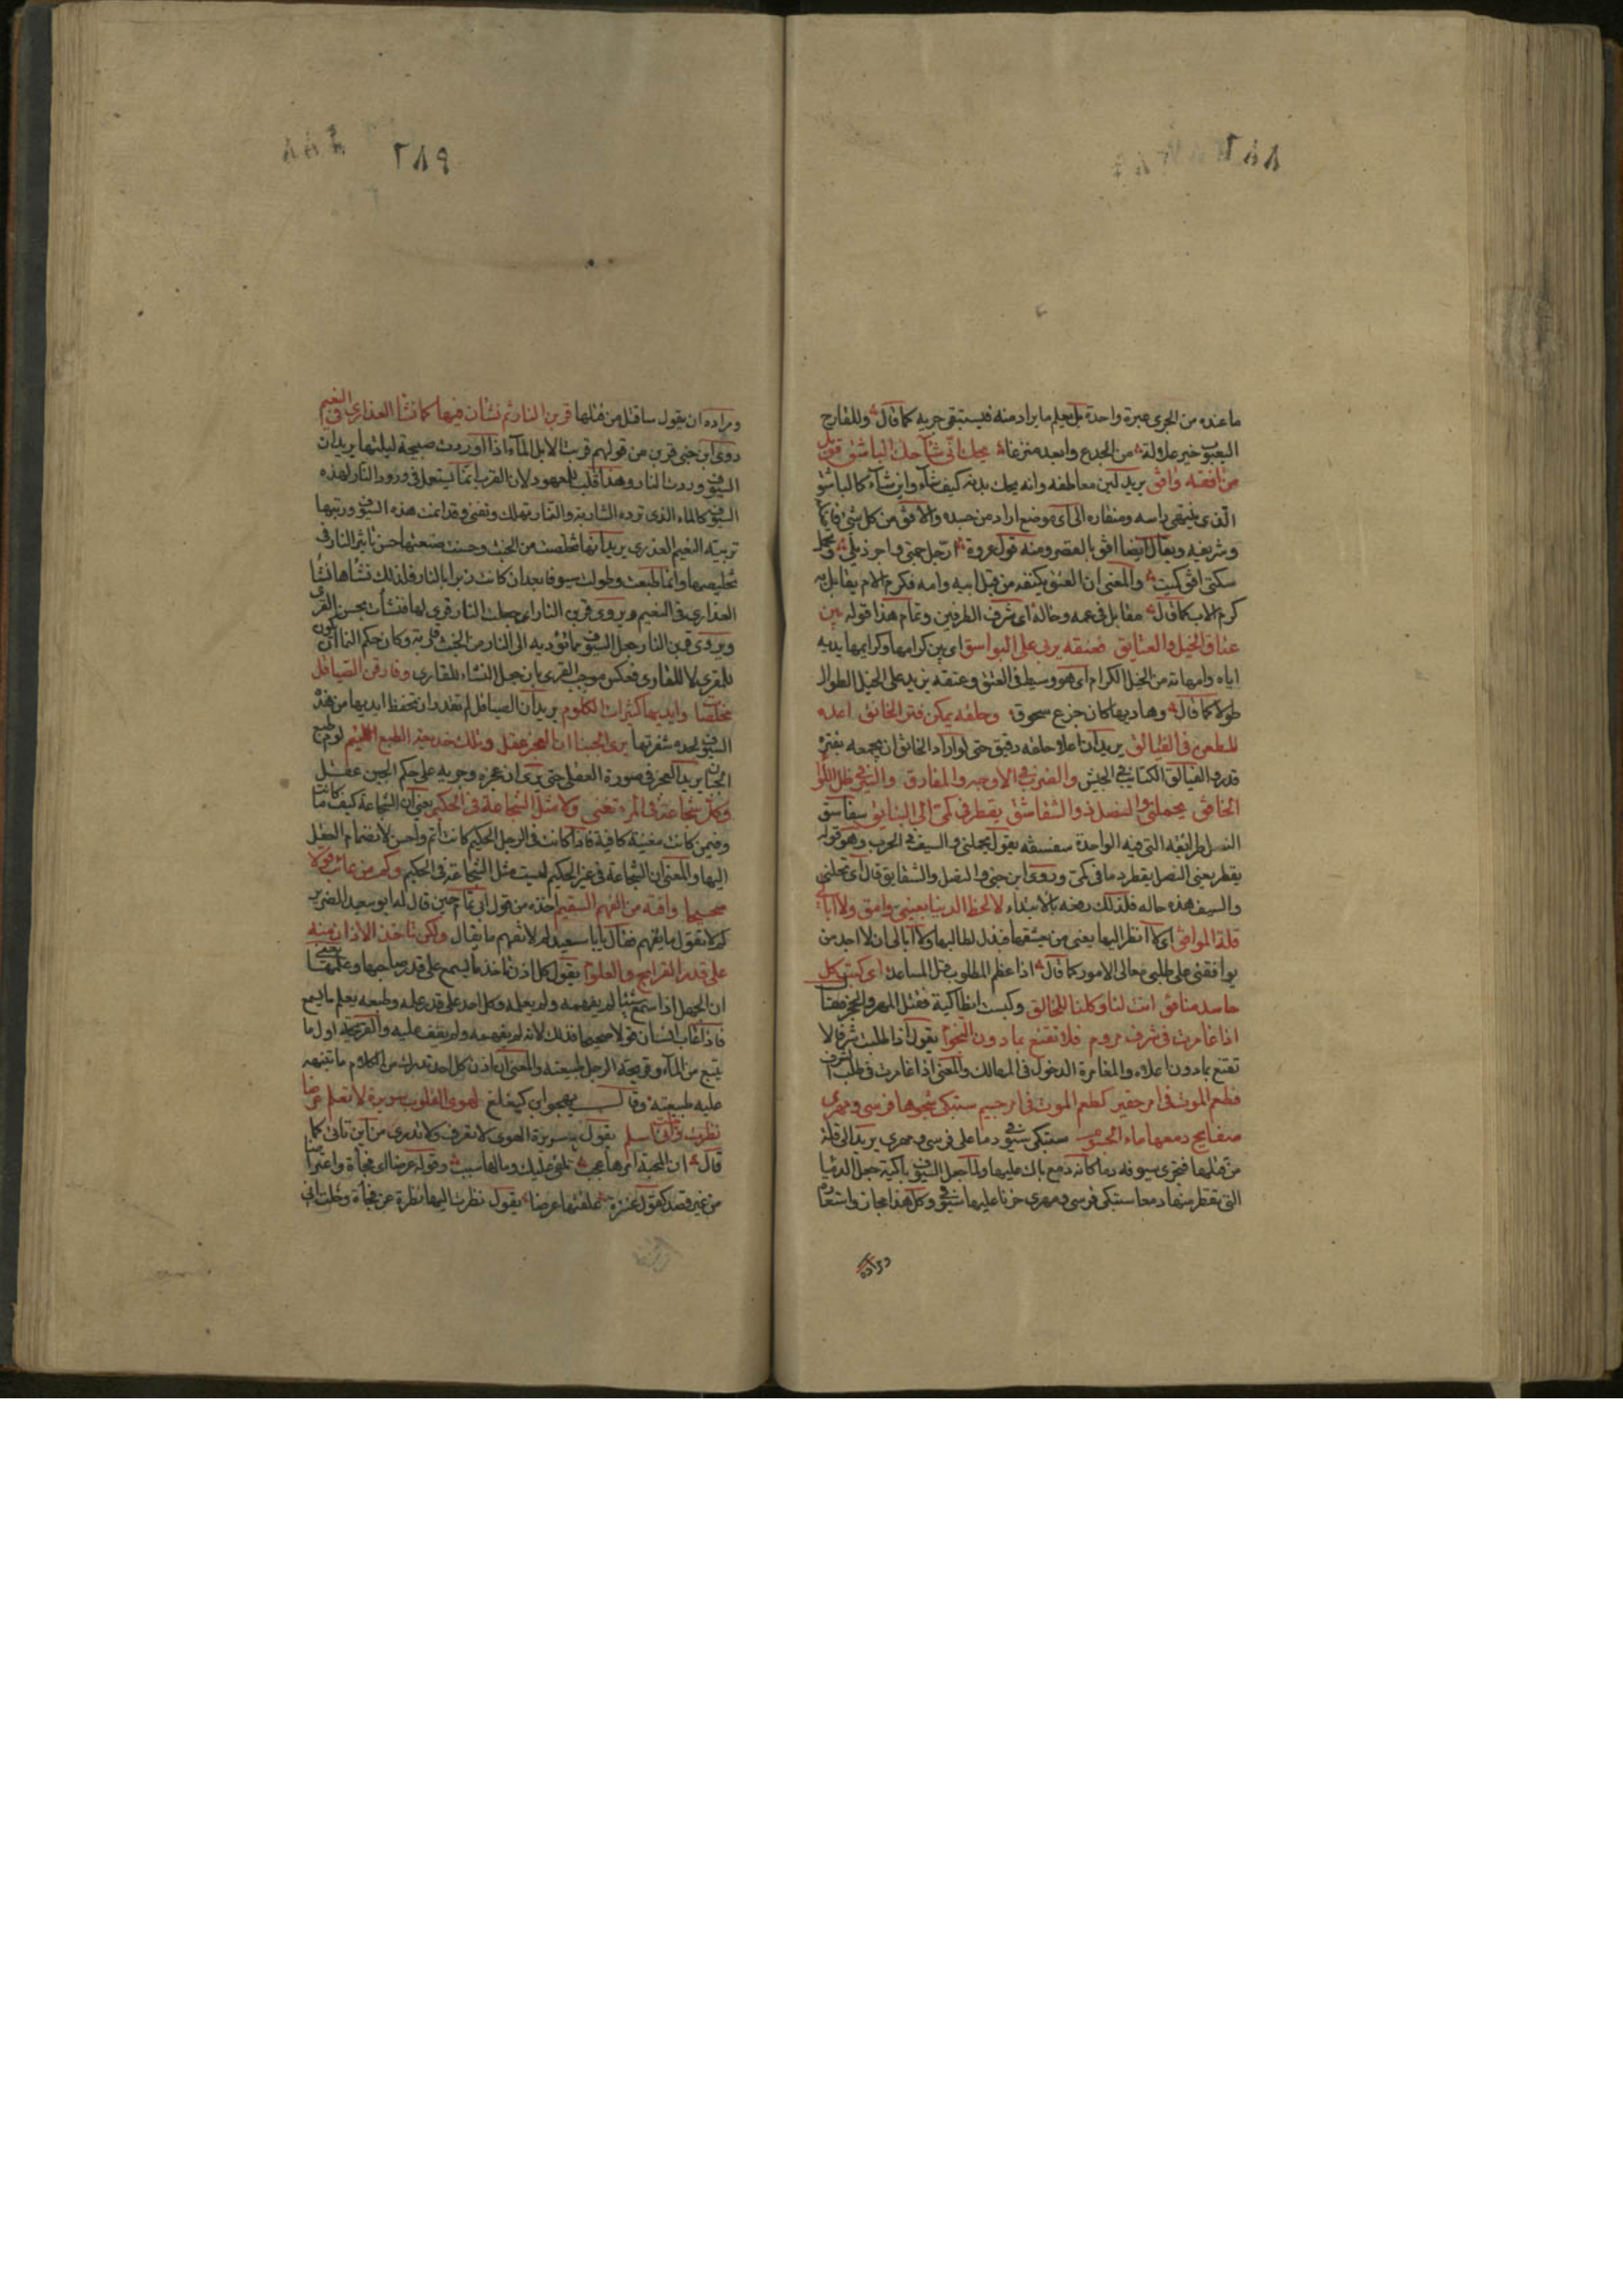 ٢٨٨
ما عنده من الجري عبرة واحدة بل يعلم ما يراد منه فيستبقي جريه كما قال وللقارح
اليعبوب خير علالة من الجذع وابعد منزعا يحك انى شآ حك الباشق قوبل
من افقه وافق يريد لين معاطفه وانه يحك بدنه كيف شآء واين شآء كالباشق
الذى ينتهى راسه ومنقاره الى اى موضع اراد من جسده والافق من كل شئ فايقه
وشريفه ويقال ايضا افق بالقصر ومنه قول عروة ارجل جمتي واجر ذيلي وتحمل
سكتي افق كميت والمعنى ان العتق يكنفه من قبل ابيه وامه فكرم الام يقابل به
كرم الاب كما قال مقابل في عمه وخاله اى شرف الطرفين وتمام هذا قوله بين
عتاق الخيل والعتايق فعنقه يربى على البواسق اى بين كرامها وكرايمها يريد به
اباه وامهاته من الخيل الكرام اى هو وسيط في العتق وعنقه يزيد على الخيل الطوال
طولا كما قال وهاديها كان جزع سحوق وحلقه يمكن فتر الخانق اعده
للطعن في الفيالق يريد ان اعلا حلقه دقيق حتى لو اراد الخانق ان يجمعه بفتره
قدر والفيالق الكتايب في الجيش والضرب في الاوجه والمفارق والسير في ظل اللوا
الخافق يحملني والنصل ذو السفاسق يقطر في كمي الى البنايق سفاسق
النصل طرائقه التي فيه الواحدة سفسقه يقول يحملني والسيف في الحرب وهو قوله
يقطر يعني النصل يقطر دما في كمي وروى ابن جني والنصل والشقايق قال اى تحملني
والسيف هذه حاله فلذلك رفعه بالابتداء لا الحظ الدنيا بعيني وامق ولا ابالي
قلة الموافق اى لا انظر اليها يعنى من يعشقها فيذل لطالبها ولا ابالى ان لا احد من
يوافقني على طلبي معالى الامور كما قال اذا عظم المطلوب قل المساعد اى كبت كل
حاسد منافق انت لنا وكلنا للخالق وكبست انطاكية فقتل المهر والحجر فقال
اذا غامرت في شرف مروم فلا تقنع بما دون النجوم يقول اذا طلبت شرفا لا
تقنع بما دون اعلاه والمغامرة الدخول في المهالك والمعنى اذا غامرت في طلب الشرف
فطعم الموت في امر حقير كطعم الموت في امر جسيم ستبكي شجوها فرسى ومهري
صفايح دمعها ماء الجسوم ستبكى سيوفي دما على فرسى ومهري يريد الى قلة
من قتلها فتجرى سيوفه دما كانه دمع باك عليها ولما جعل السيوف باكية جعل الدما
التي تقطر منها دمعا ستبكى فرسى ومهري حزنا عليها سيوفي وكل هذا مجاز واستعاره
ومراده
٢٨٩
ومراده ان يقول ساقتل من قتلها قربن النار ثم نشان فيها كما نشا العذارى في النعيم
روى ابن جنى قربن من قولهم قربت الابل المآء اذا اوردت صبيحة ليلتها يريد ان
السيوف وردت النار وهذا قلب للمعهود لان القرب انما يستعمل في ورود النار لهذه
السيوف كالماء الذى ترده الشاربة والنار تهلك وتفنى وقد انمت هذه السيوف وربتها
تربيته النعيم العذرى يريد انها تخلصت من الخبث وحسنت صنعتها حسن تاثير النار في
تخليصها وانما طبعت وطولت سيوفا بعد ان كانت زبرا بالنار فلذلك نشاها نشأ
العذارى في النعيم ويروى قرين النار اى جعلت النار قرى لها فنشأت بحسن القرى
ويروى قربن النار جعل السيوف بما تؤديه الى النار من الخبث قاربة وكان حكم النما ان يكون
للمقرى لا للقارى فعكس موجب القرى بان جعل النشاء للقارى وفارقن الصياقل
مخلصات وايديها كثيرات الكلوم يريد ان الصياقل لم تقدر ان تحفظ ايديها من هذه
السيوف لحدة شفرتها يرى الجبناء ان العجز عقل وتلك خديعة الطبع اللئيم لوم طبع
الجبان يريد العجز في صورة العقل حتى يرى ان عجزه وجريه على حكم الجبن عقل
وكل شجاعة في المرء تغنى ولا مثل الشجاعة في الحكيم يعني ان الشجاعة كيف ما كانت
وفيمن كانت مغنية كافية فاذا كانت في الرجل الحكيم كانت اتم واحسن لانضمام العقل
اليها والمعنى ان الشجاعة في غير الحكيم ليست مثل الشجاعة في الحكيم وكم من عائب قولا
صحيحا وافته من الفهم السقيم اخذه من قول ابي تمام حين قال له ابو سعيد الضرير
لم لا تقول ما يفهم فقال يابا سعيد لم لا تفهم ما يقال ولكن تاخذ الاذان منه
على قدر القرايح والعلوم يقول كل اذن تاخذ ما يسمع على قدر صاحبها وعلمها يعنى
ان الجهل اذا سمع شيئا لم يفهمه ولم يعلمه وكل احد على قدر علمه وطبعه يعلم ما يسمع
فاذا عاب انسان قولا صحيحا فذلك لانه لم يفهمه ولم يقف عليه والقريحة اول ما
ينبع من المآء وقريحة الرجل طبيعته والمعنى ان اذن كل احد تدرك من الكلام ما تنبهه
عليه طبيعته وقال يهجو ابن كيغلغ لهوى القلوب سريرة لا تعلم عرضا
نظرت وخلت انى اسلم يقول سريرة الهوى لا تعرف ولا تدرى من اين تاتى كما
قال ان المحبة امرها عجب تلقى عليك وما لها سبب وقوله عرضا اى فجأة واعتراضا
من غير قصد كقول عنترة علقتها عرضا يقول نظرت اليها نظرة عن فجأة وخلت انى